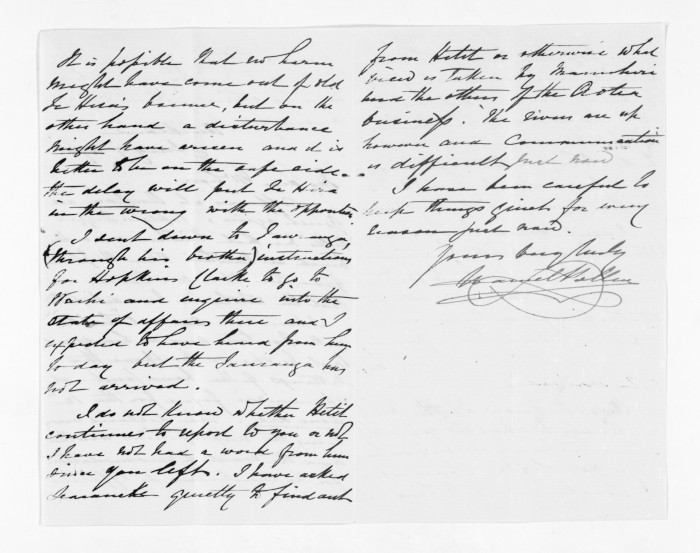 It is possible that no harm
might have come out of old
Te Hira's banner, but on the
other hand a disturbance
might have arisen and it is
better to be on the safe side -
the delay will put Te Hira
in the wrong with the opposition
I sent down to Tauranga,
(through his brother) instructions
for Hopkins Clarke to go to
and inquire into the
state of affairs there and I
expected to have heard from him
to day but the Tauranga has
not arrived.
I do not know whether Hetit
continues to report to you or not,
I have not had a word from him
since you left. I have asked
quietly to find out
from Hetit or otherwise what
view is taken by
and the others of the Aotea
business. The rivers are up
however and communication
is difficult just now
I have been careful to
keep things quiet for every
reason just now.
Yours very truly
Daniel Pollen